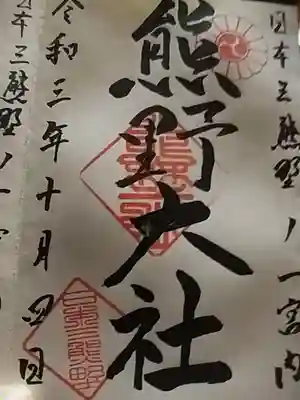 日本三熊野ノ一宮内
熊野大社
令和三年十月四日
日本三熊野ノ一宮
日本三熊野